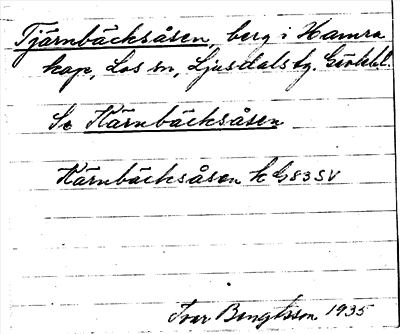 Tjärnbäcksåsen, berg i Hamra
kap, Los sn, Ljusdals tg. Gävlebl.
Se Kärnbäcksåsen
Kärnbäcksåsen k G83SV
Ivar Bengtsson 1935